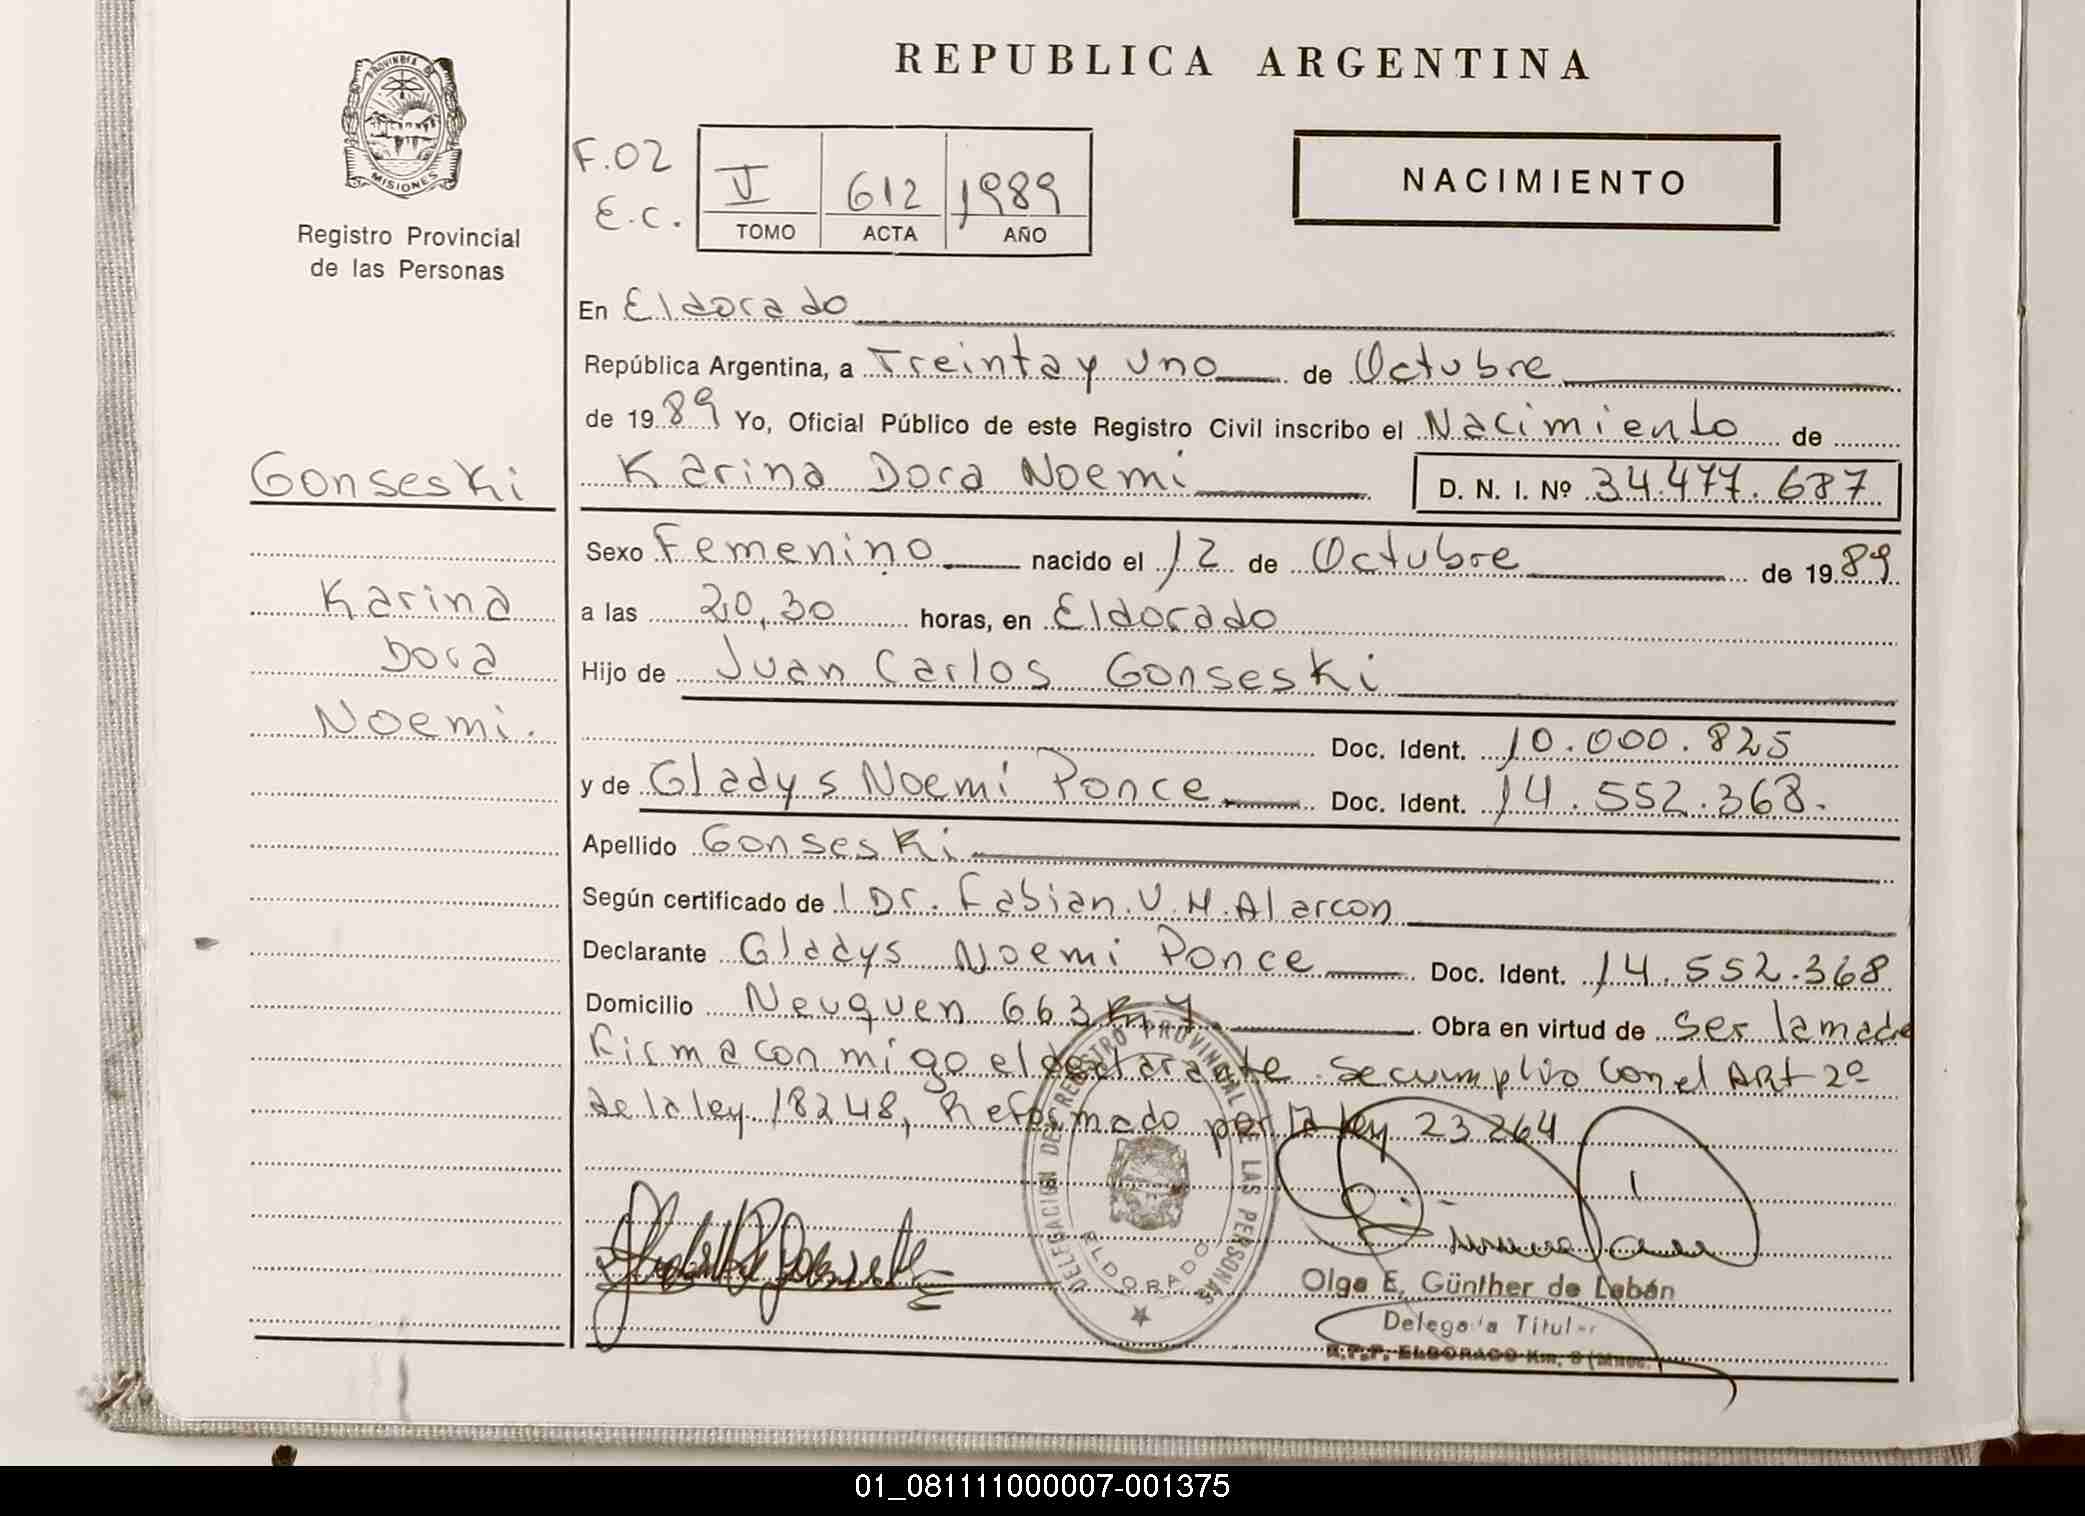 REPUBLICA ARGENTINA
PROVINCIA DE
MISIONES
Registro Provincial
de las Personas
F.02
E.C.
V 612 1989
TOMO ACTA AÑO
NACIMIENTO
En Eldorado
República Argentina, a Treinta y Uno de Octubre
de 1989 Yo, Oficial Público de este Registro Civil inscribo el Nacimiento de
Gonseski
Karina Dora Noemi D. N. I. Nº 34.477.687
Sexo Femenino nacido el 12 de Octubre de 1989
Karina
Dora
Noemi.
a las 20,30 horas, en Eldorado
Hijo de Juan Carlos Gonseski
Doc. Ident. 10.000.825
y de Gladys Noemi Ponce Doc. Ident. 14.552.368.
Apellido Gonseski
Según certificado de l Dr. Fabian.V.H.Alarcon
Declarante Gladys Noemi Ponce Doc. Ident. 14.552.368
Domicilio Neuquen 663 Km 7 Obra en virtud de ser la madre
firma conmigo el declarante. Se cumplio con el ARt 2º
de la ley 18248, Reformado per la ley 23264
DELEGACION DEL REGISTRO PROVINCIAL DE LAS PERSONAS
ELDORADO
Olga E. Günther de Lebán
Delegada Titular
R.P.P. ELDORADO Km. 8 (Mnes.)
01_081111000007-001375